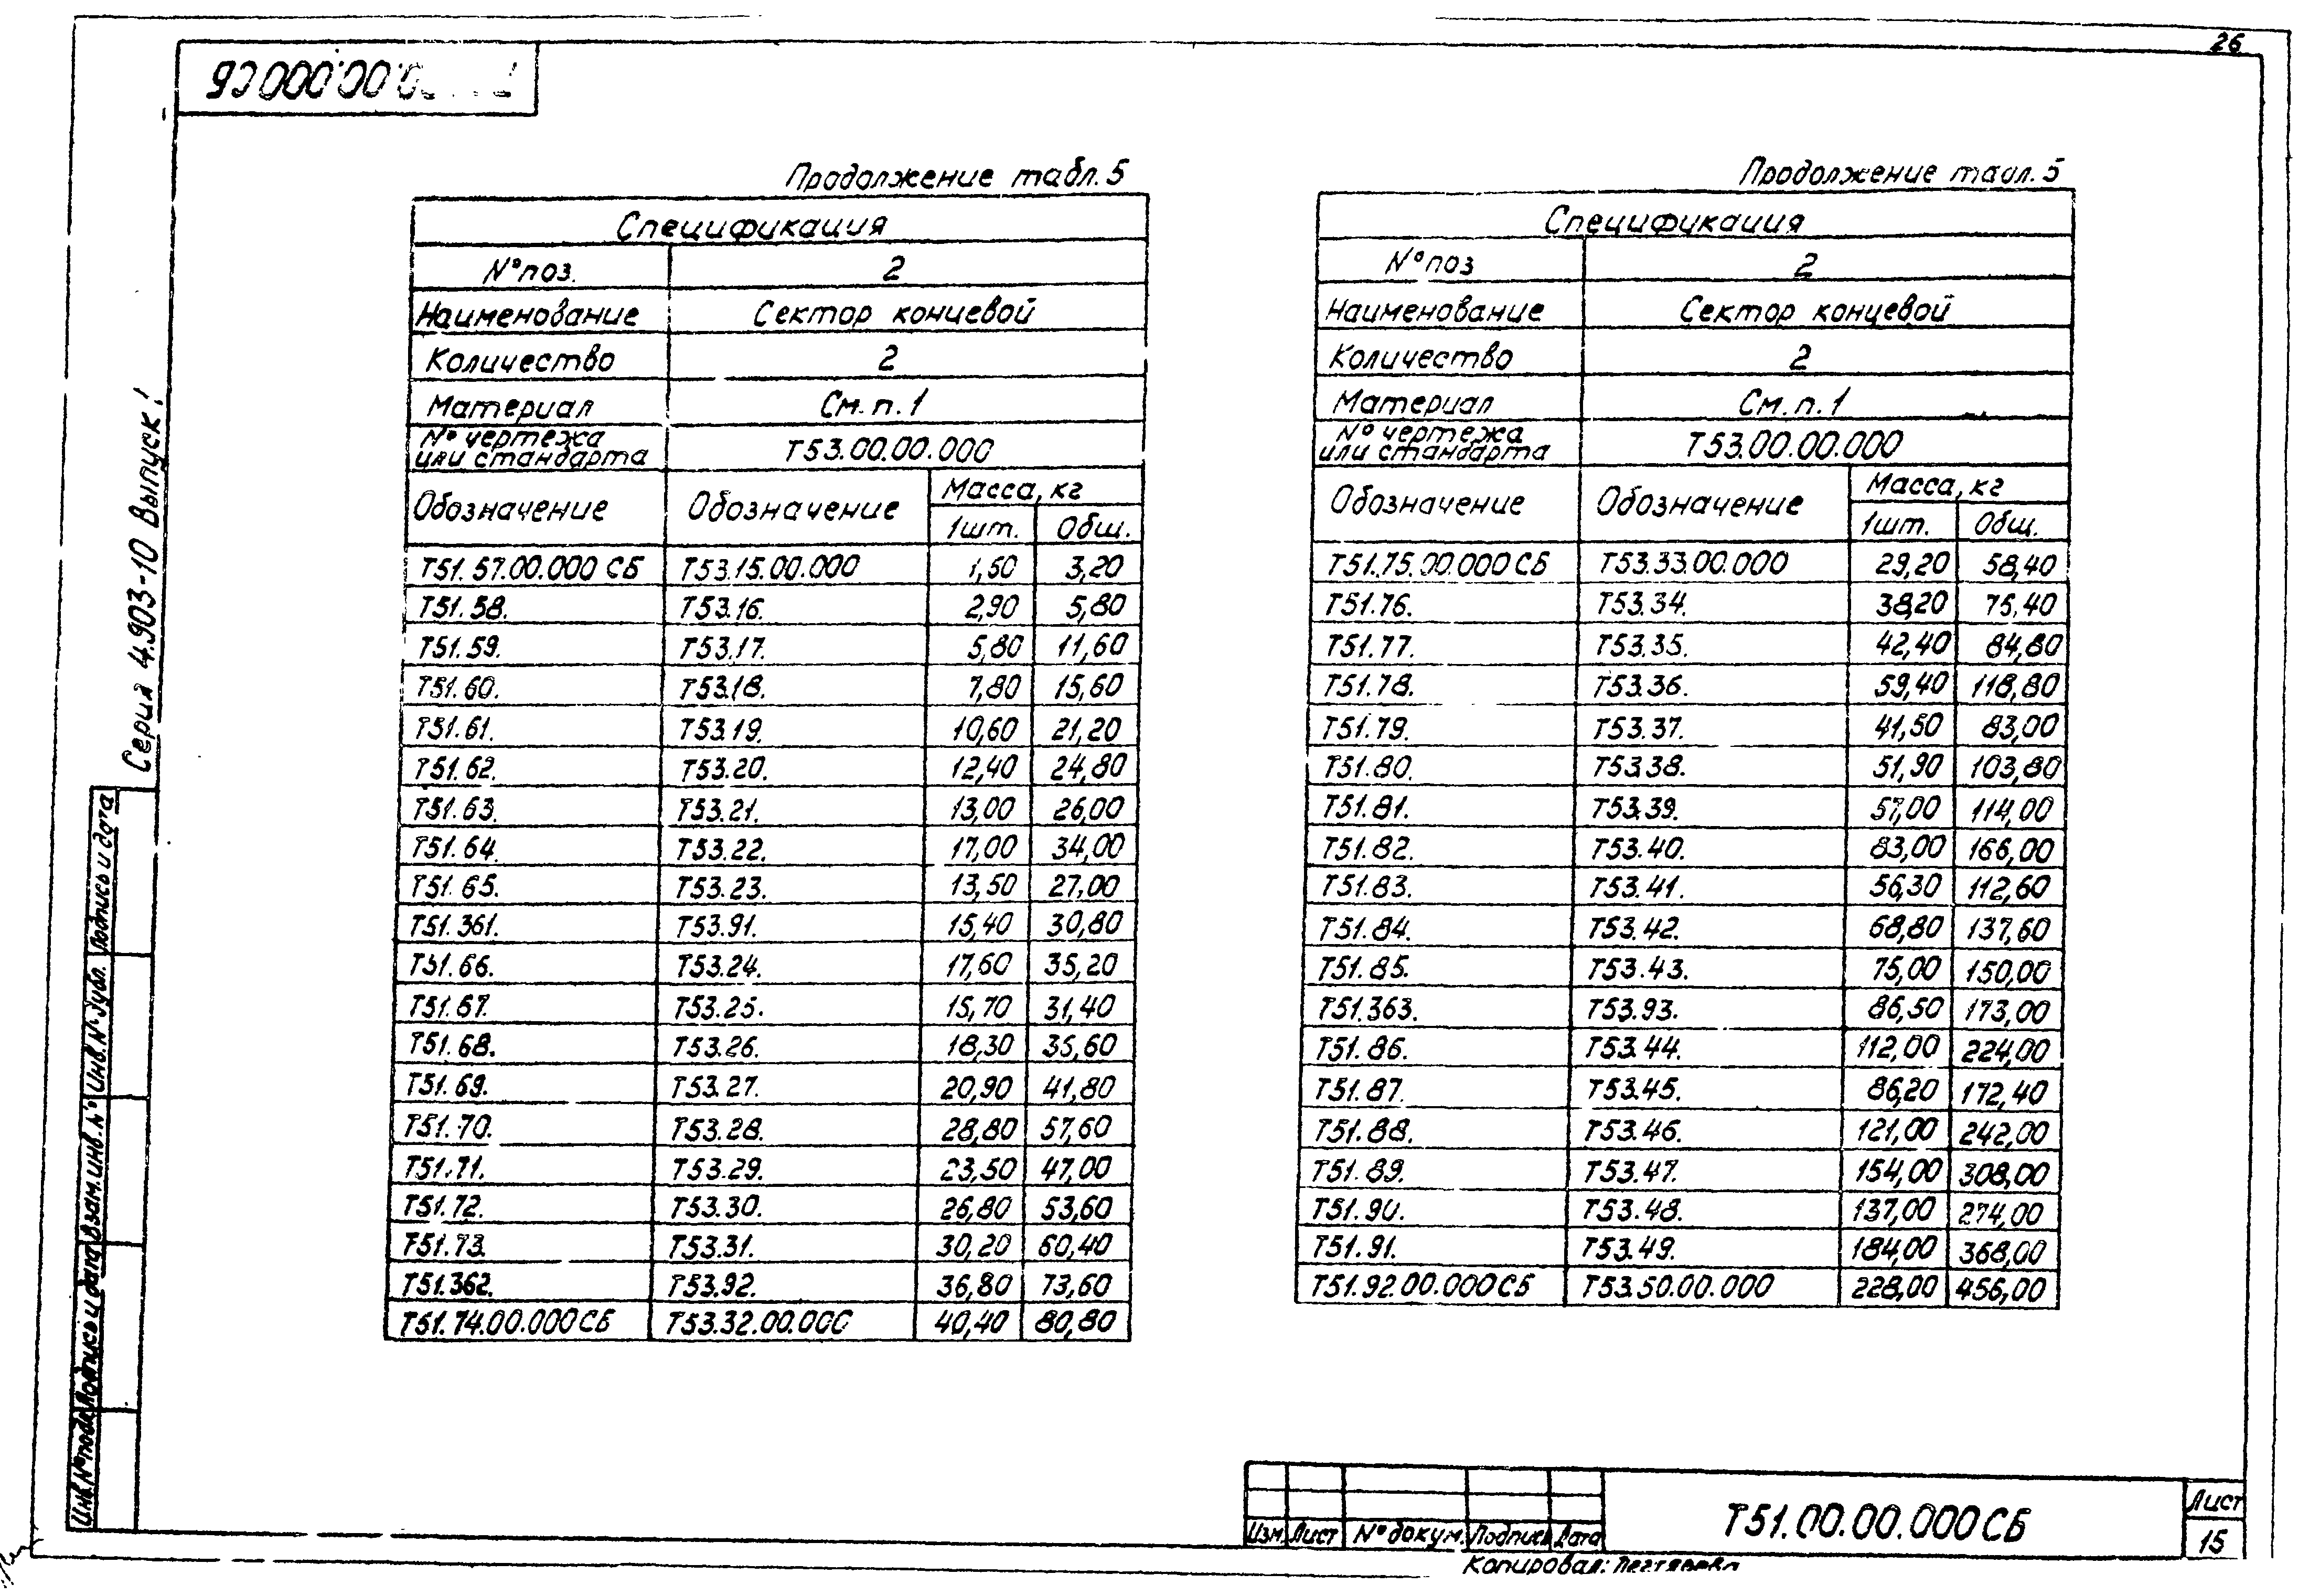 26
Серия 4.903-10 Выпуск 1
Продолжение табл. 5
Спецификация
N° поз. 2
Наименование Сектор концевой
Количество 2
Материал См. п. 1
N° чертежа или стандарта Т53.00.00.000
Обозначение Обозначение Масса, кг
1шт. Общ.
Т51.57.00.000 СБ Т53.15.00.000 1,60 3,20
Т51.58. Т53.16. 2,90 5,80
Т51.59. Т53.17. 5,80 11,60
Т51.60. Т53.18. 7,80 15,60
Т51.61. Т53.19. 10,60 21,20
Т51.62. Т53.20. 12,40 24,80
Т51.63. Т53.21. 13,00 26,00
Т51.64. Т53.22. 17,00 34,00
Т51.65. Т53.23. 13,50 27,00
Т51.361. Т53.91. 15,40 30,80
Т51.66. Т53.24. 17,60 35,20
Т51.67. Т53.25. 15,70 31,40
Т51.68. Т53.26. 18,30 36,60
Т51.69. Т53.27. 20,90 41,80
Т51.70. Т53.28. 28,80 57,60
Т51.71. Т53.29. 23,50 47,00
Т51.72. Т53.30. 26,80 53,60
Т51.73. Т53.31. 30,20 60,40
Т51.362. Т53.92. 36,80 73,60
Т51.74.00.000 СБ Т53.32.00.000 40,40 80,80
Продолжение табл. 5
Спецификация
N° поз 2
Наименование Сектор концевой
Количество 2
Материал См. п. 1
N° чертежа или стандарта Т53.00.00.000
Обозначение Обозначение Масса, кг
1шт. Общ.
Т51.75.00.000 СБ Т53.33.00.000 29,20 58,40
Т51.76. Т53.34. 38,20 76,40
Т51.77. Т53.35. 42,40 84,80
Т51.78. Т53.36. 59,40 118,80
Т51.79. Т53.37. 41,50 83,00
Т51.80. Т53.38. 51,90 103,80
Т51.81. Т53.39. 57,00 114,00
Т51.82. Т53.40. 83,00 166,00
Т51.83. Т53.41. 56,30 112,60
Т51.84. Т53.42. 68,80 137,60
Т51.85. Т53.43. 75,00 150,00
Т51.363. Т53.93. 86,50 173,00
Т51.86. Т53.44. 112,00 224,00
Т51.87. Т53.45. 86,20 172,40
Т51.88. Т53.46. 121,00 242,00
Т51.89. Т53.47. 154,00 308,00
Т51.90. Т53.48. 137,00 274,00
Т51.91. Т53.49. 184,00 368,00
Т51.92.00.000 СБ Т53.50.00.000 228,00 456,00
Подпись и дата
Инв. N° дубл.
Взам. инв. N°
Подпись и дата
Инв. N° подл.
Изм. Лист N° докум. Подпись Дата
Т51.00.00.000 СБ
Лист
15
Копировал: